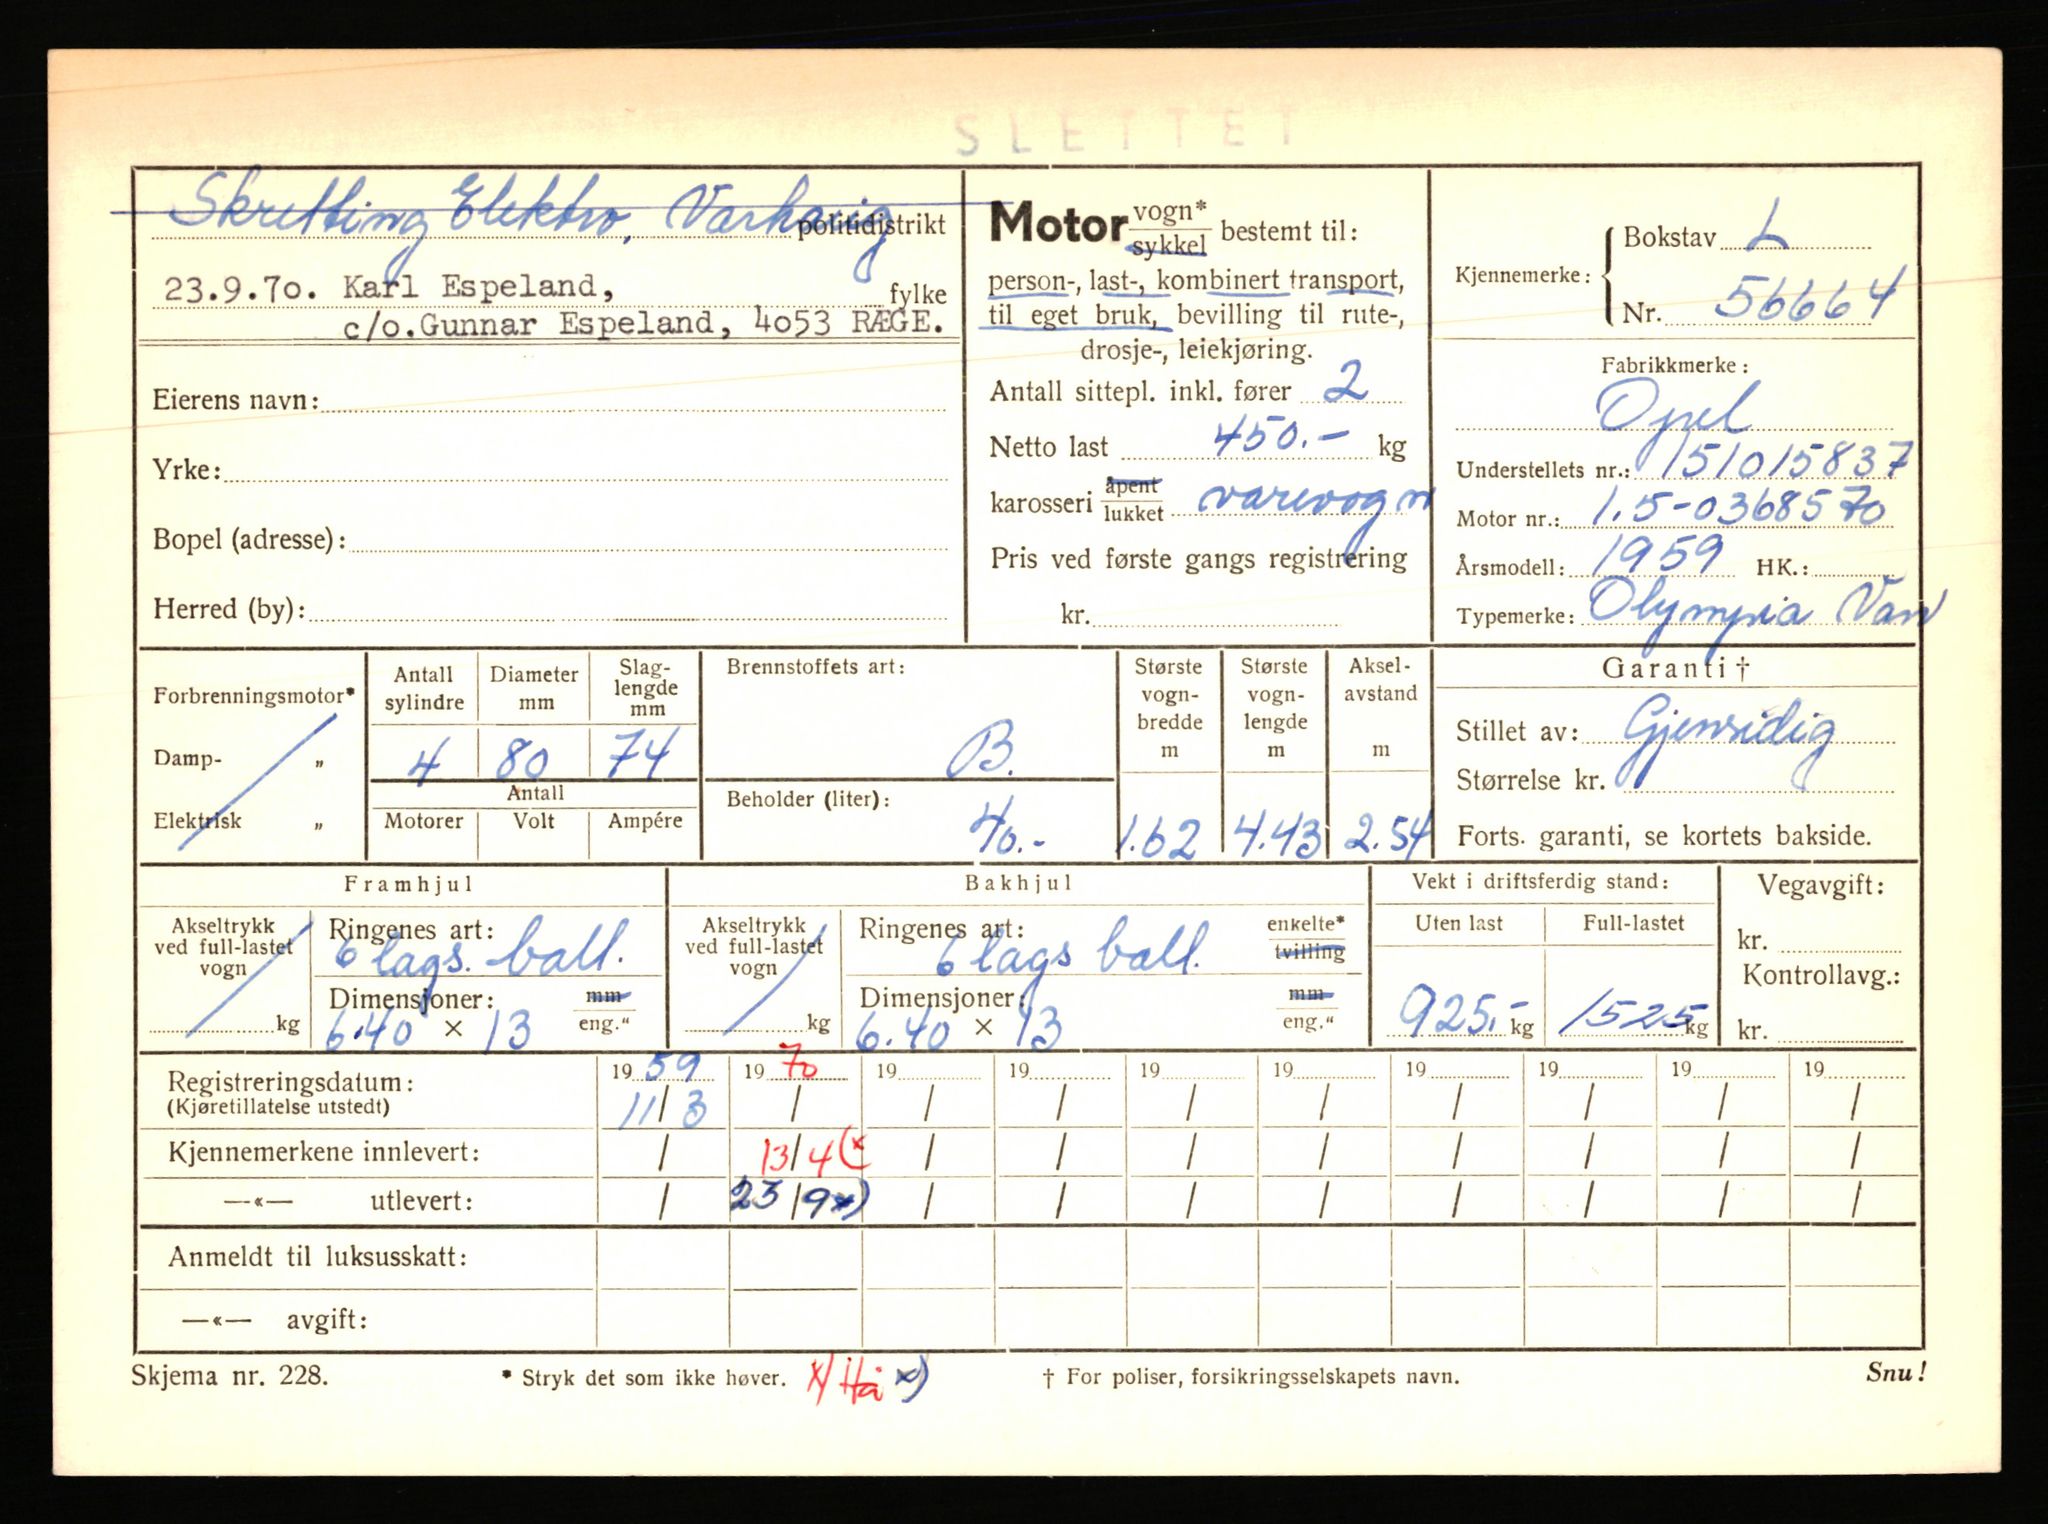 SLETTET
Skretting Elektro, Varhaug politidistrikt
23.9.70. Karl Espeland, fylke
c/o.Gunnar Espeland, 4053 RÆGE.
Eierens navn:
Yrke:
Bopel (adresse):
Herred (by):
Motor vogn* sykkel bestemt til:
person-, last-, kombinert transport,
til eget bruk, bevilling til rute-,
drosje-, leiekjøring.
Antall sittepl. inkl. fører 2
Netto last 450.- kg
karosseri åpent lukket varevogn
Pris ved første gangs registrering
kr.
Kjennemerke: Bokstav L
Nr. 56664
Fabrikkmerke:
Opel
Understellets nr.: 151015837
Motor nr.: 1.5-0368570
Årsmodell: 1959 HK.:
Typemerke: Olympia Van
Forbrenningsmotor*
Damp- „
Elektrisk „
Antall sylindre Diameter mm Slag-lengde mm
4 80 74
Antall
Motorer Volt Ampére
Brennstoffets art:
B.
Beholder (liter):
40.-
Største vogn-bredde m Største vogn-lengde m Aksel-avstand m
1.62 4.43 2.54
Garanti †
Stillet av: Gjensidig
Størrelse kr.
Forts. garanti, se kortets bakside.
Framhjul
Akseltrykk ved full-lastet vogn
kg
Ringenes art:
6 lags. ball.
Dimensjoner: mm eng."
6.40 × 13
Bakhjul
Akseltrykk ved full-lastet vogn
kg
Ringenes art: enkelte* tvilling
6 lags ball.
Dimensjoner: mm eng."
6.40 × 13
Vekt i driftsferdig stand:
Uten last Full-lastet
925.- kg 1525 kg
Vegavgift:
kr.
Kontrollavg.:
kr.
Registreringsdatum: 19 59 19 70 19 19 19 19 19 19 19 19
(Kjøretillatelse utstedt) 11/3 / / / / / / / / /
Kjennemerkene innlevert: / 13/4 (x / / / / / / / /
—«— utlevert: / 23/9 x) / / / / / / / /
Anmeldt til luksusskatt:
—«— avgift:
Skjema nr. 228. * Stryk det som ikke høver. x) Hå x) † For poliser, forsikringsselskapets navn. Snu!